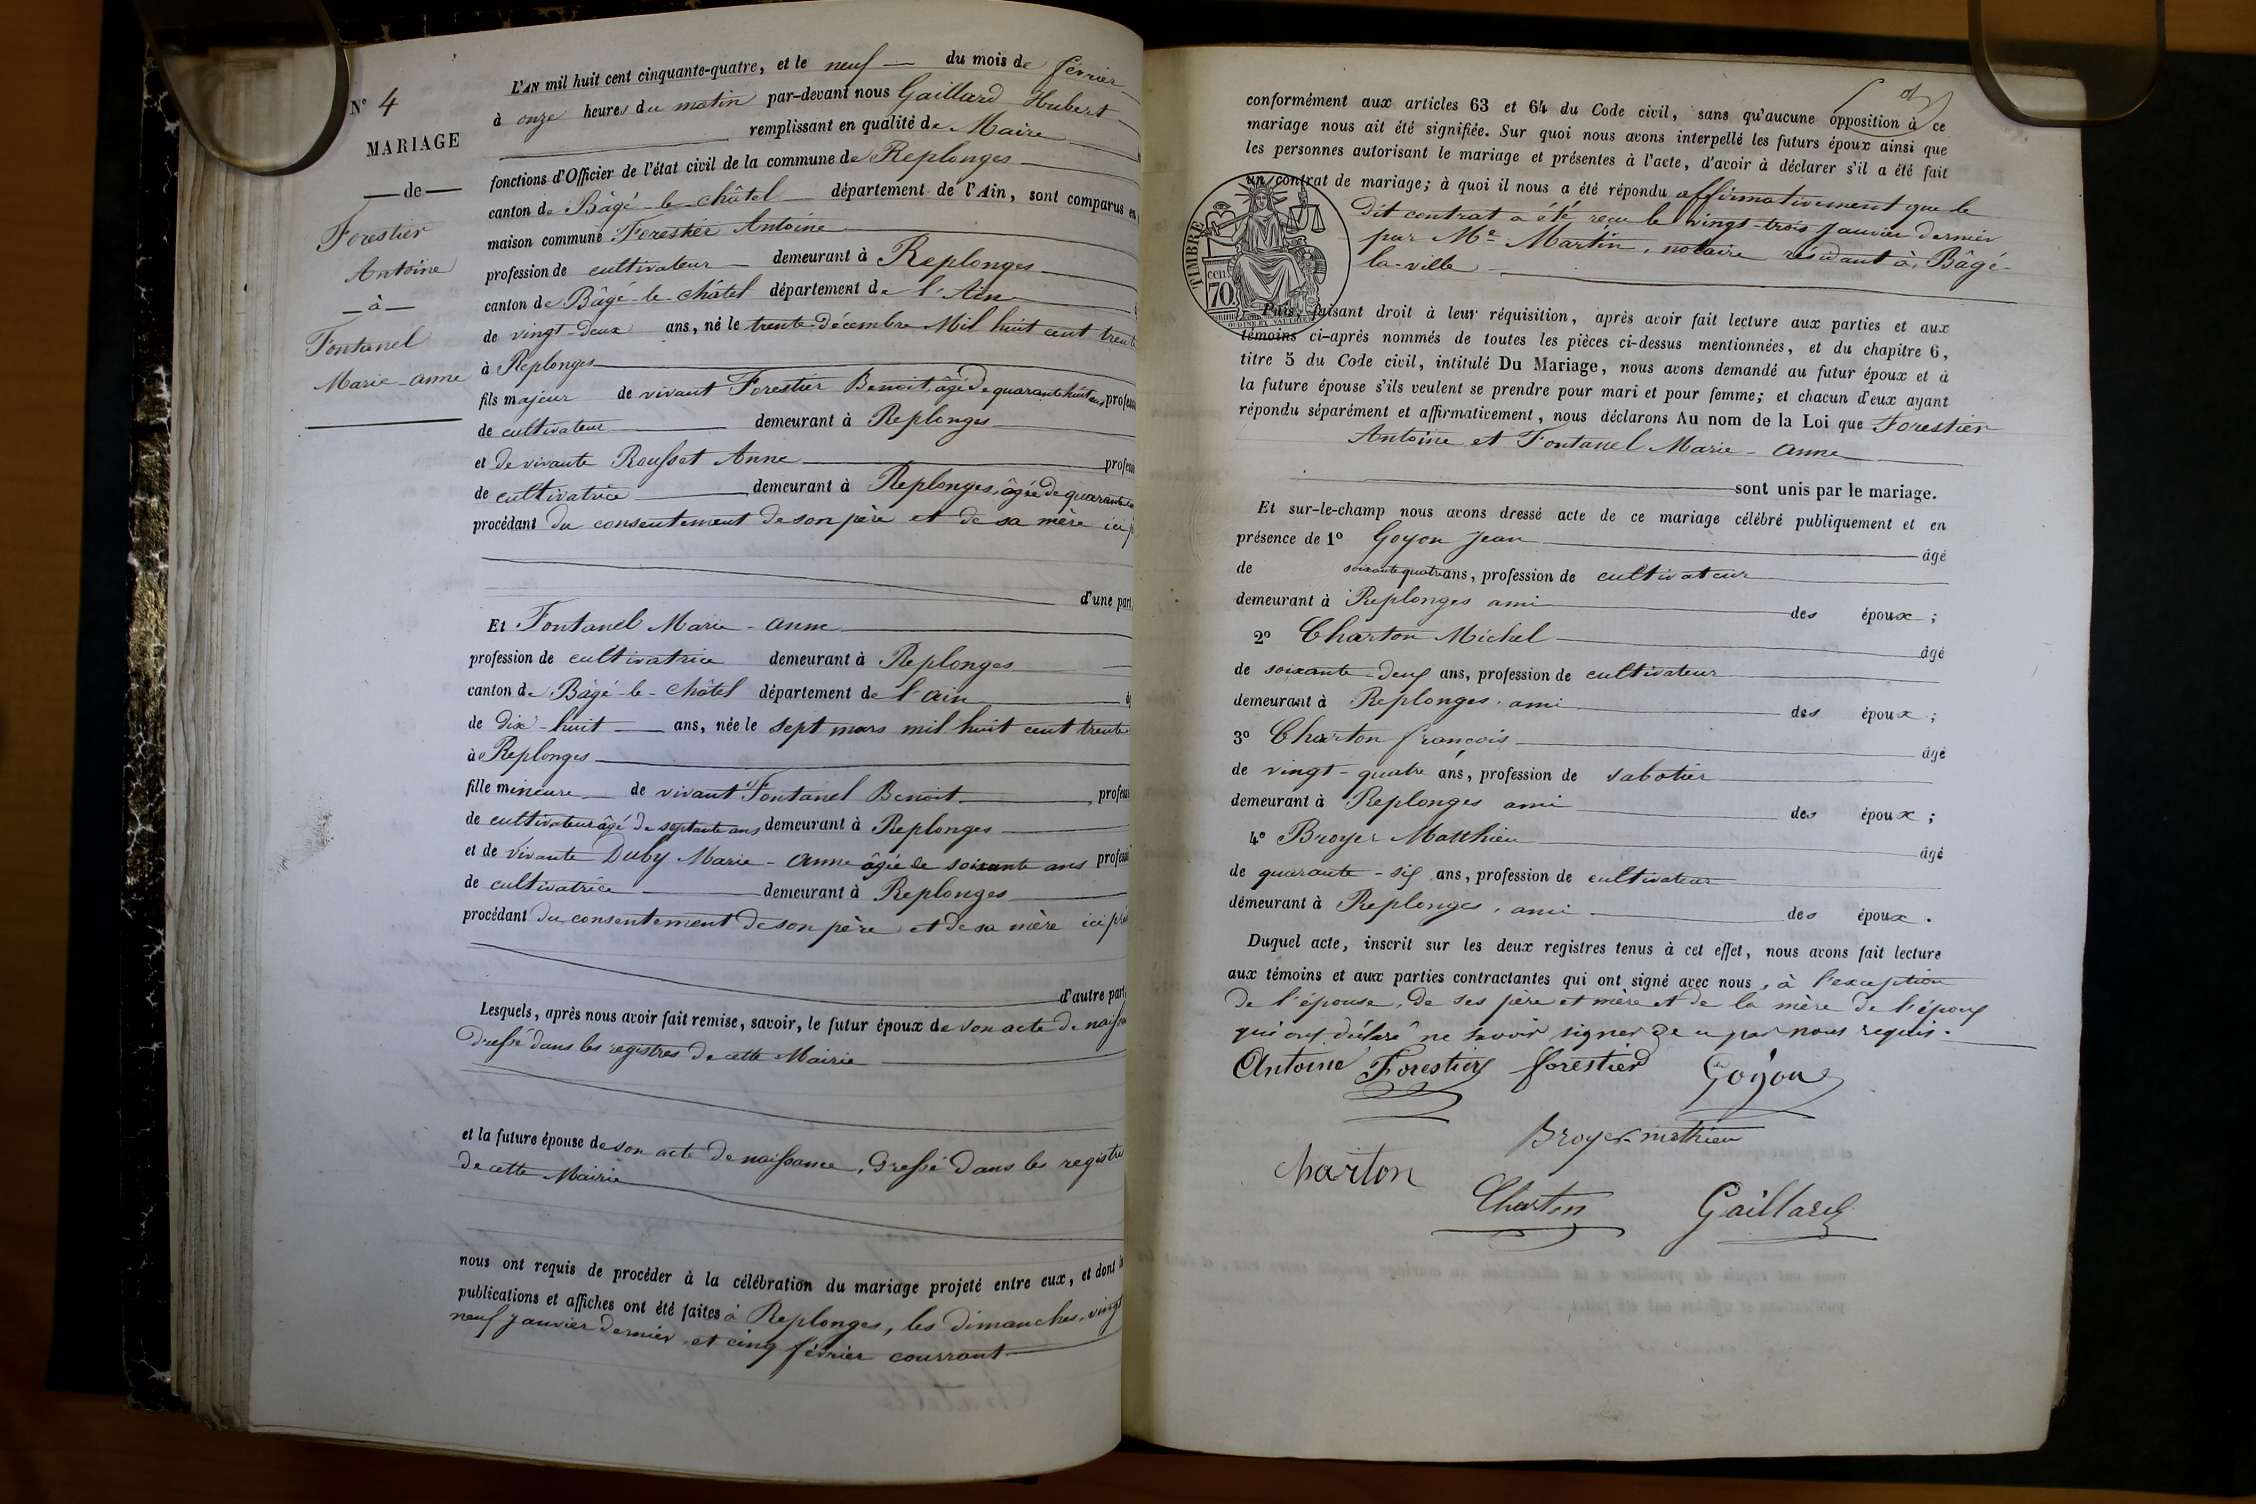 N° 4
MARIAGE
de
Forestier
Antoine
à
Fontanel
Marie-anne
L'AN mil huit cent cinquante-quatre, et le neuf du mois de février
à onze heures du matin par-devant nous Gaillard Hubert
remplissant en qualité de Maire
fonctions d'Officier de l'état civil de la commune de Replonges
canton de Bâgé-le-châtel département de l'Ain, sont comparus en
maison commune Forestier Antoine
profession de cultivateur demeurant à Replonges
canton de Bâgé-le-châtel département de l'Ain
de vingt-deux ans, né le trente décembre Mil huit cent trente
à Replonges
fils majeur de vivant Forestier Benoit, âgé de quarante huit ans
de cultivateur demeurant à Replonges
et de vivante Rousset Anne
de cultivatrice demeurant à Replonges, âgée de quarante
procédant du consentement de son père et de sa mère ici
d'une part
Et Fontanel Marie-anne
profession de cultivatrice demeurant à Replonges
canton de Bâgé-le-châtel département de l'ain
de dix-huit ans, née le sept mars mil huit cent trente
à Replonges
fille mineure de vivant Fontanel Benoit
de cultivateur âgé de septante ans demeurant à Replonges
et de vivante Duby Marie-anne âgée de soixante ans
de cultivatrice demeurant à Replonges
procédant du consentement de son père et de sa mère ici
d'autre part
Lesquels, après nous avoir fait remise, savoir, le futur époux de son acte de
dressé dans les registres de cette Mairie
et la future épouse de son acte de naissance, dressé dans les registres
de cette Mairie
nous ont requis de procéder à la célébration du mariage projeté entre eux, et dont
publications et affiches ont été faites à Replonges, les dimanches, vingt
neuf janvier dernier et cinq février courrant
conformément aux articles 63 et 64 du Code civil, sans qu'aucune opposition à ce
mariage nous ait été signifiée. Sur quoi nous avons interpellé les futurs époux ainsi que
les personnes autorisant le mariage et présentes à l'acte, d'avoir à déclarer s'il a été fait
un contrat de mariage; à quoi il nous a été répondu affirmativement que le
dit contrat a été reçu le vingt-trois janvier dernier
par Me Martin, notaire résidant à Bâgé-
la-ville
TIMBRE
cent.
70.
Puis, faisant droit à leur réquisition, après avoir fait lecture aux parties et aux
témoins ci-après nommés de toutes les pièces ci-dessus mentionnées, et du chapitre 6,
titre 5 du Code civil, intitulé Du Mariage, nous avons demandé au futur époux et à
la future épouse s'ils veulent se prendre pour mari et pour femme; et chacun d'eux ayant
répondu séparément et affirmativement, nous déclarons Au nom de la Loi que Forestier
Antoine et Fontanel Marie-anne
sont unis par le mariage.
Et sur-le-champ nous avons dressé acte de ce mariage célébré publiquement et en
présence de 1° Goyon Jean âgé
de soixante quatre ans, profession de cultivateur
demeurant à Replonges ami des époux;
2° Charton Michel âgé
de soixante-deux ans, profession de cultivateur
demeurant à Replonges, ami des époux;
3° Charton françois âgé
de vingt-quatre ans, profession de sabotier
demeurant à Replonges ami des époux;
4° Broyer Matthieu âgé
de quarante-six ans, profession de cultivateur
demeurant à Replonges, ami des époux.
Duquel acte, inscrit sur les deux registres tenus à cet effet, nous avons fait lecture
aux témoins et aux parties contractantes qui ont signé avec nous, à l'exception
de l'épouse, de ses père et mère et de la mère de l'époux
qui ont déclaré ne savoir signer de ce par nous requis.
Antoine Forestier forestier Goyon
Broyer mathieu
charton
Charton Gaillard